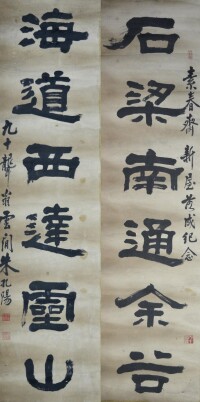 素春齋新屋落成纪念
石梁南通余谷
海道西達靈山
九十聾翁雲間朱孔陽